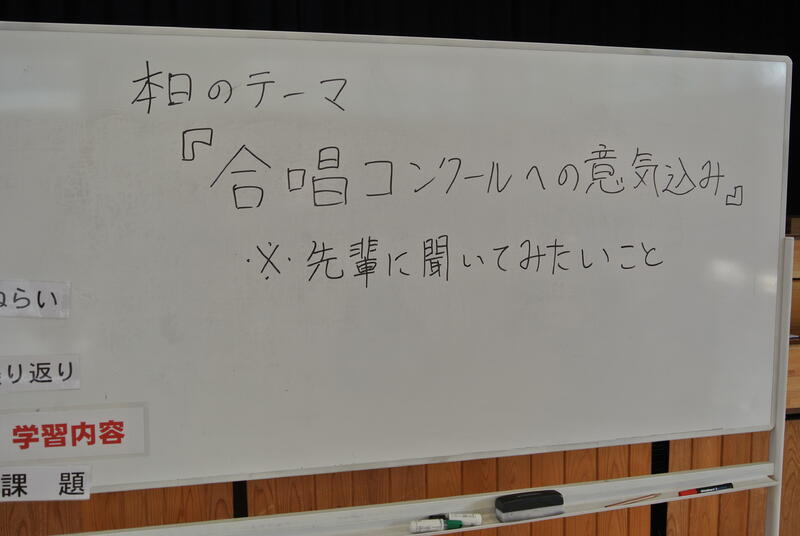 本日のテーマ
『合唱コンクールへの意気込み』
※先輩に聞いてみたいこと
らい
り返り
学習内容
課 題